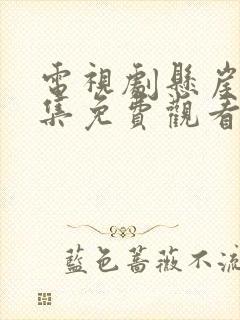 電視劇懸崖
集免費觀看
藍色薔薇不流